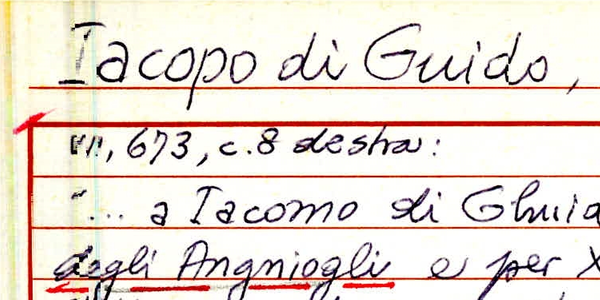 Iacopo di Guido,
673, c. 8 destra:
"... a Iacomo di Ghuid
degli Angniogli e per X